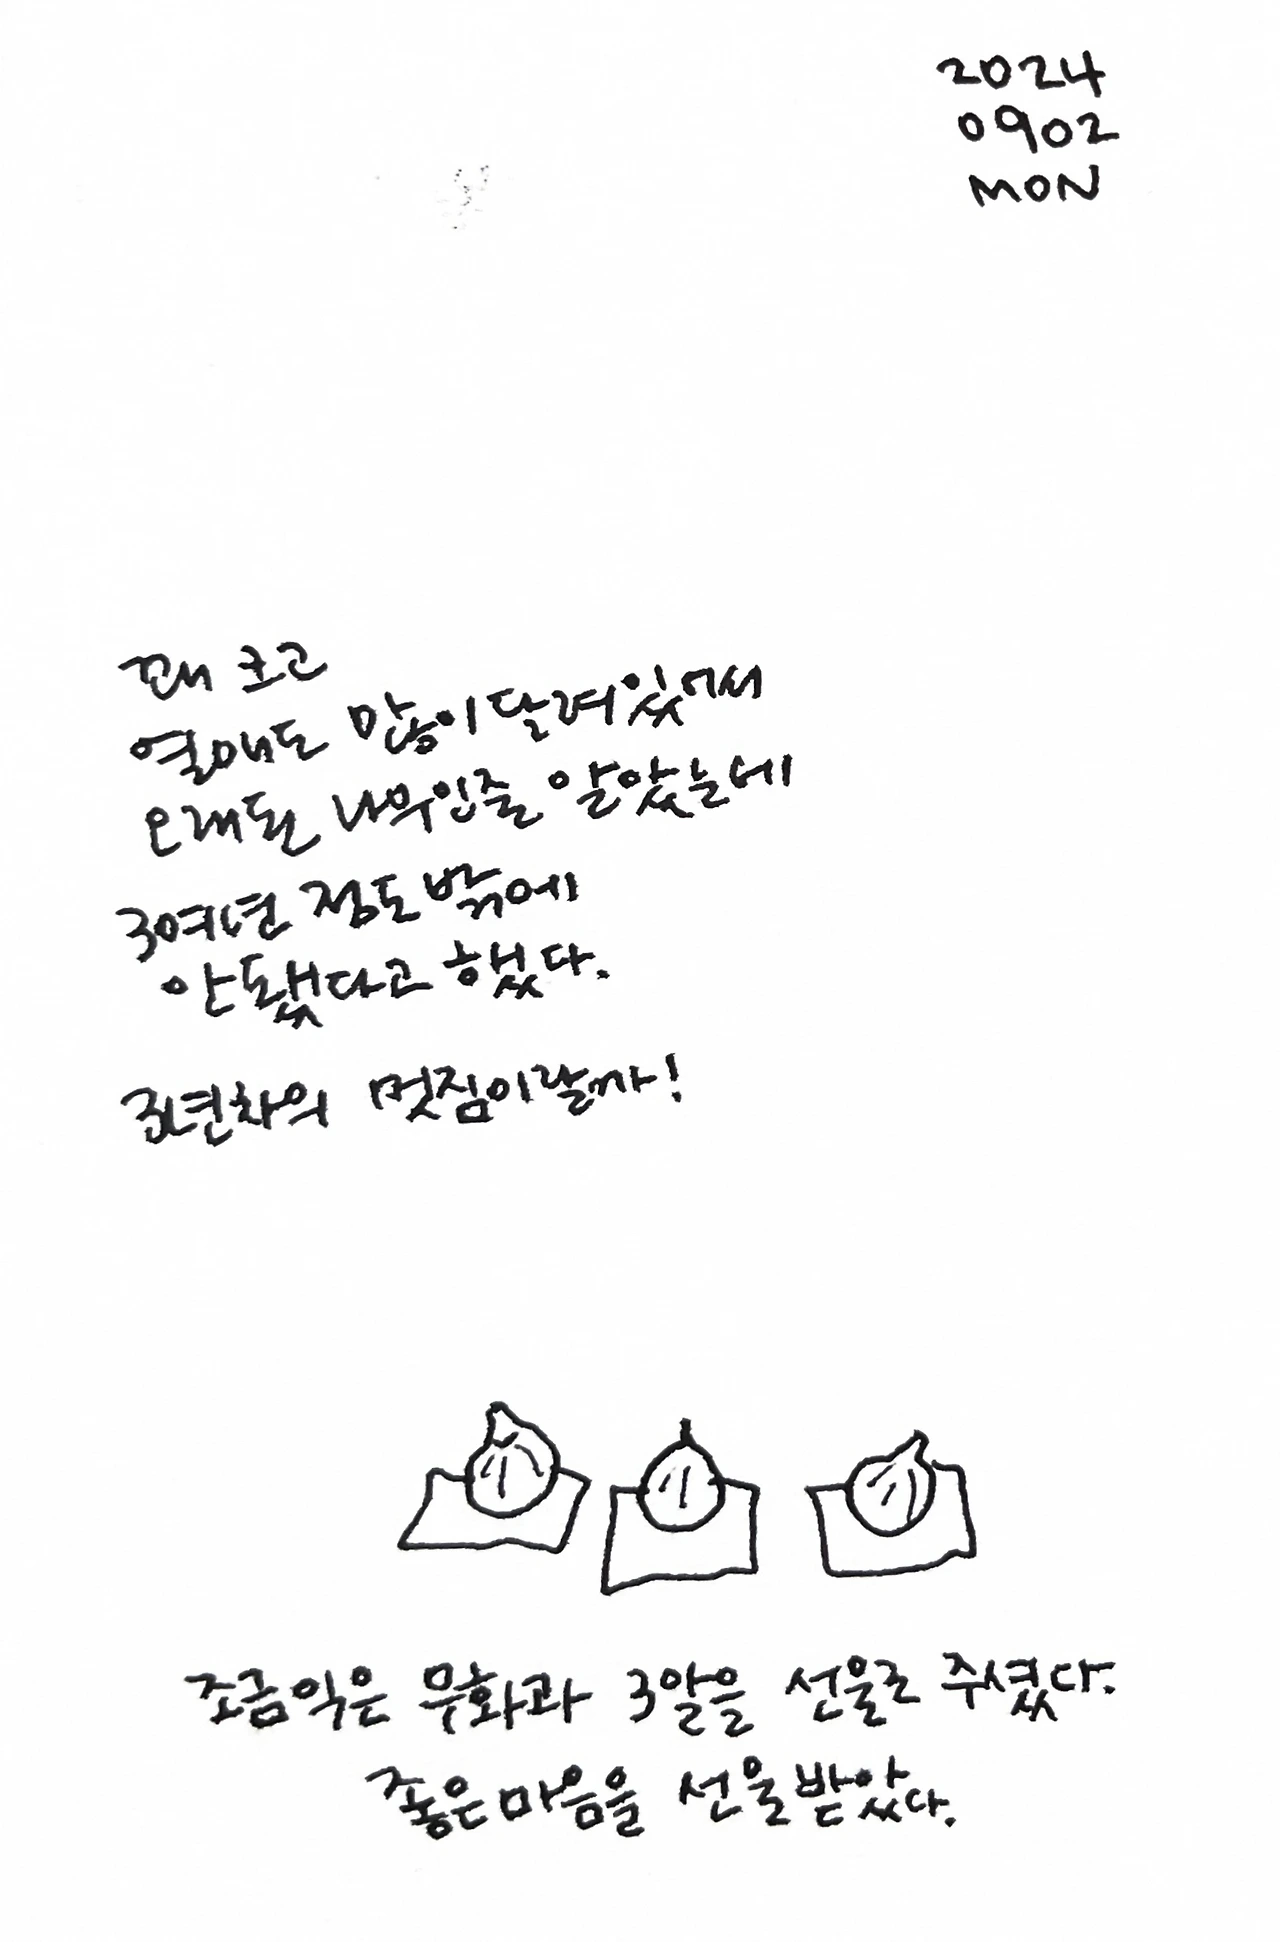 2024
0902
MON
꽤 크고
열매도 많이 달려있어서
오래된 나무인줄 알았는데
3여년 정도 밖에
안됐다고 했다.
3년차의 멋짐이랄까!
조금익은 무화과 3알을 선물로 주셨다.
좋은마음을 선물받았다.